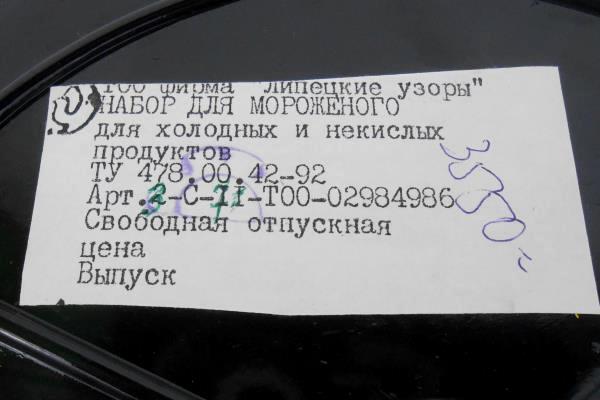 ТОО фирма "Липецкие узоры"
НАБОР ДЛЯ МОРОЖЕНОГО
для холодных и некислых
продуктов
ТУ 478.00.42-92
Арт. -С- -Т00-02984986
Свободная отпускная
цена
Выпуск